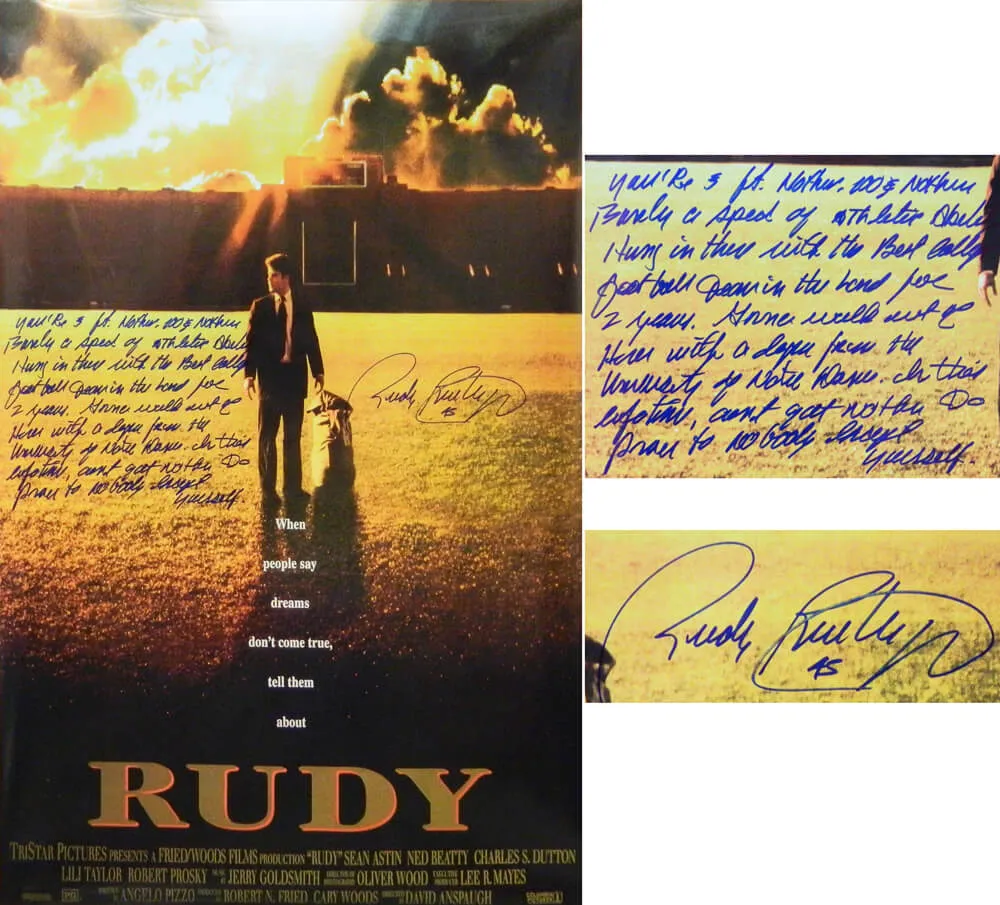 you'Re 5 ft. Nothin. 100 & Nothin
Barely a speck of athletic
Hung in there with the Best
football team in the land for
2 years. Gonna walk out of
Here with a degree from the
University of Notre Dame. In this
lifetime, dont got nothin
prove to nobody except
yourself.
Rudy Ruettiger
45
When
people say
dreams
don't come true,
tell them
about
RUDY
TRISTAR PICTURES PRESENTS A FRIED/WOODS FILMS PRODUCTION "RUDY" SEAN ASTIN NED BEATTY CHARLES S. DUTTON
LILI TAYLOR ROBERT PROSKY MUSIC BY JERRY GOLDSMITH DIRECTOR OF PHOTOGRAPHY OLIVER WOOD EXECUTIVE PRODUCER LEE R. MAYES
WRITTEN BY ANGELO PIZZO PRODUCED BY ROBERT N. FRIED CARY WOODS DIRECTED BY DAVID ANSPAUGH
you'Re 5 ft. Nothin. 100 & Nothin
Barely a speck of athletic
Hung in there with the Best
football team in the land for
2 years. Gonna walk out of
Here with a degree from the
University of Notre Dame. In this
lifetime, dont got nothin
prove to nobody except
yourself.
Rudy Ruettiger
45